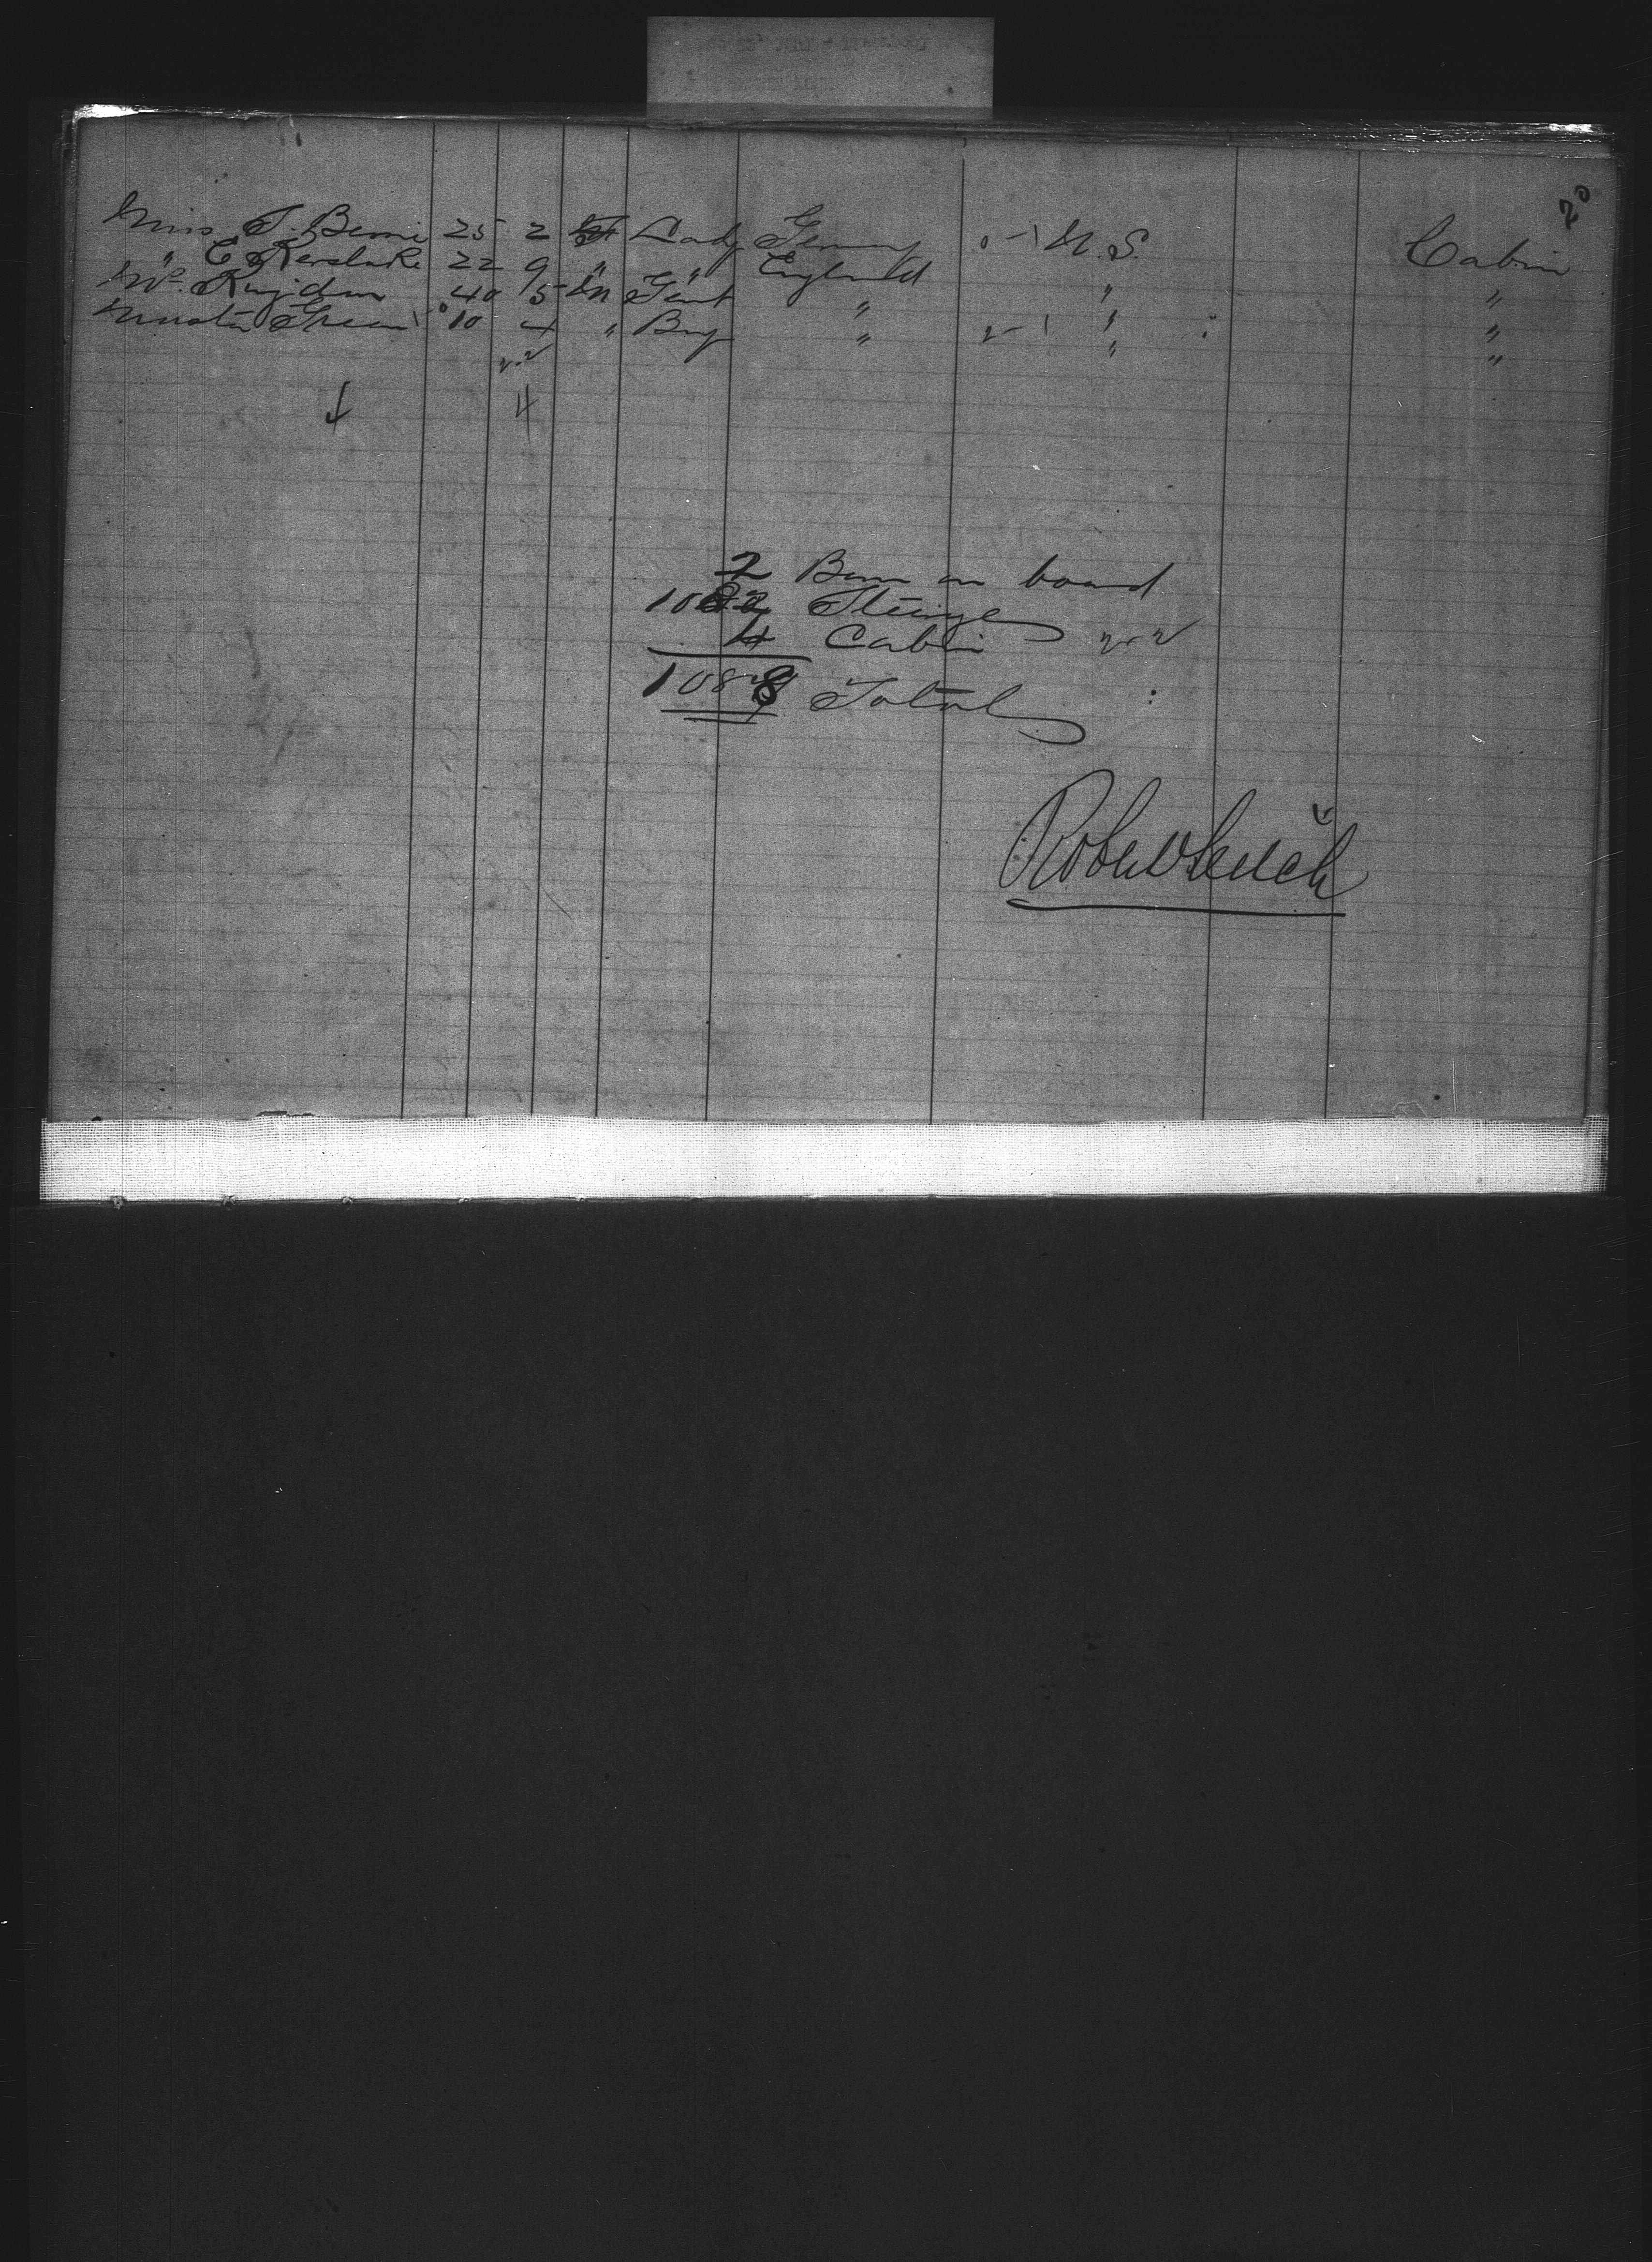 20
Miss T. Berrie 25 2 F Lady Germany U.S. Cabin
" E Kerslake 22 9 " " England " "
Mr. 40 5 M Gent " " "
Master Green 10 4 " Boy " " "
4
2 Born on board
1082 Steerage
4 Cabin
1088 Total